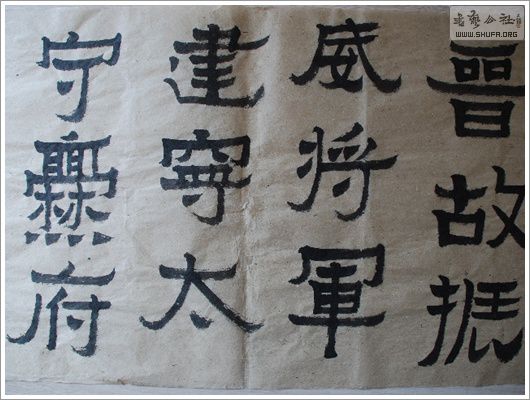 晉故振
威將軍
建寧太
守爨府
書藝公社
WWW.SHUFA.ORG